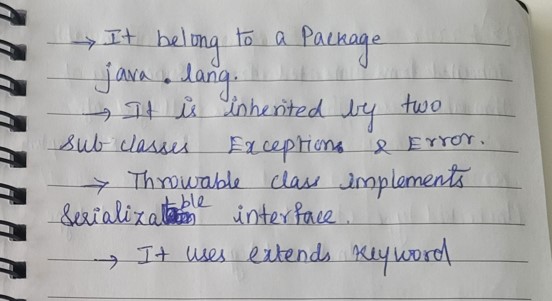 → It belong to a Package
java . lang.
→ It is inherited by two
sub classes Exceptions & Error.
→ Throwable class implements
Serializable interface.
→ It uses extends keyword